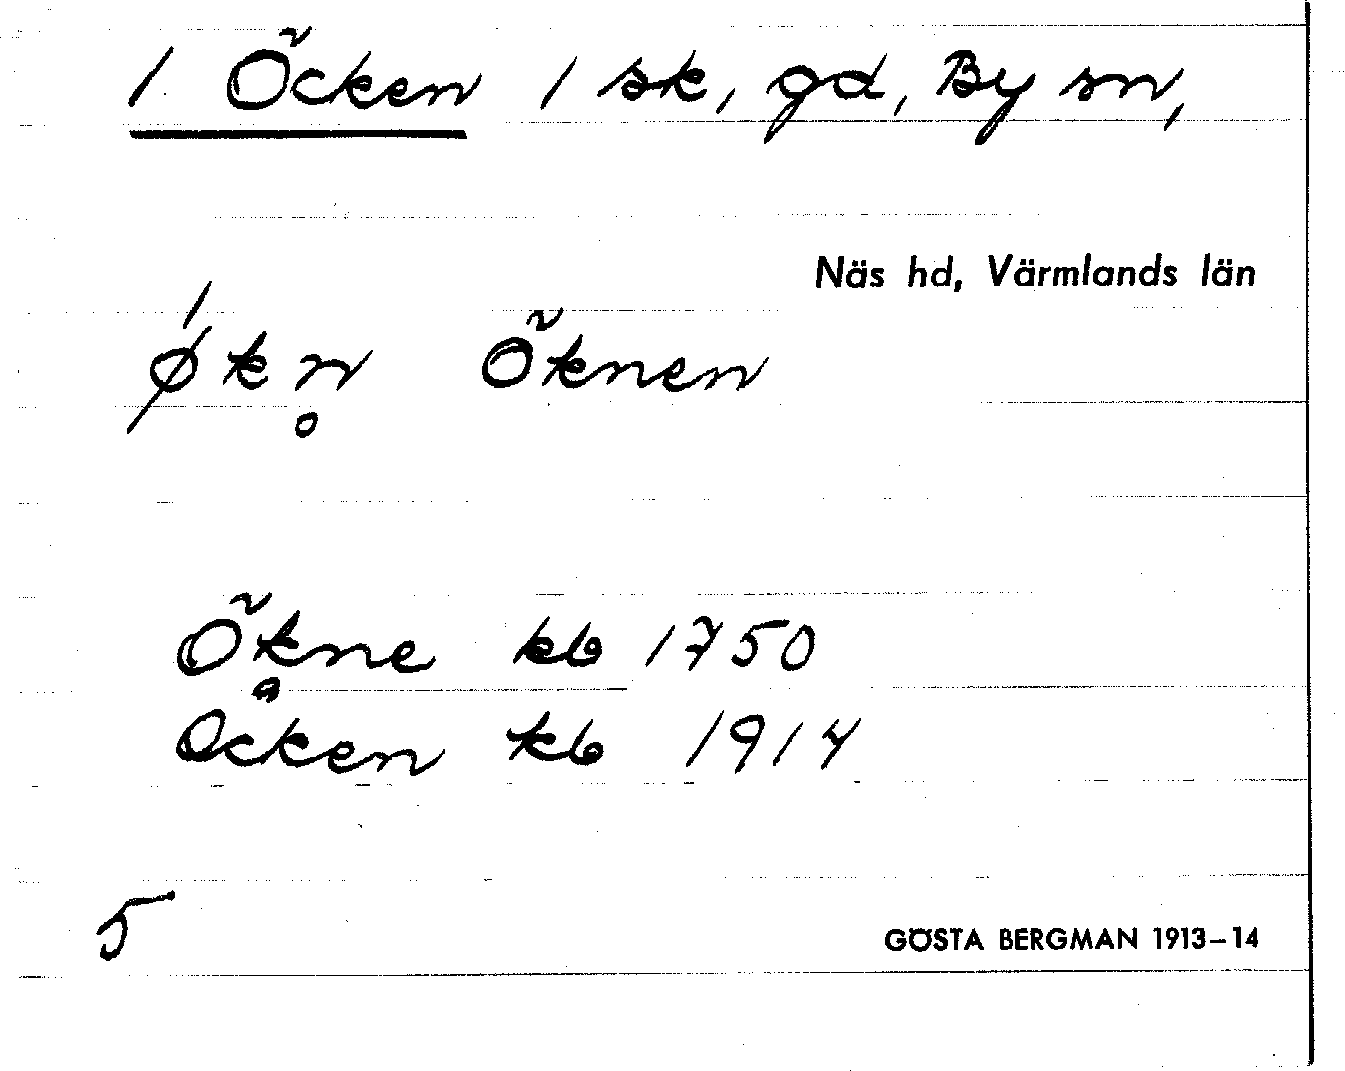 1. Öcken 1 sk, gd, By sn,
Näs hd, Värmlands län
ǿkn̥ Öknen
Ökne kb 1750
Öcken kb 1914
5
GÖSTA BERGMAN 1913–14